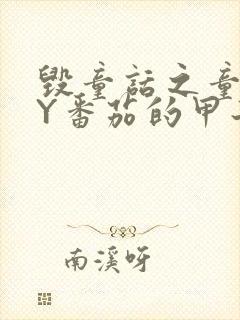 毁童话之童
Y番茄的甲
南溪呀